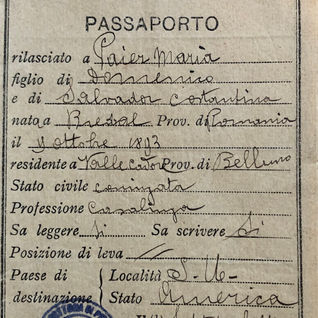 PASSAPORTO
rilasciato a Paier Maria
figlio di Domenico
e di Salvador Costantina
nata a Prov. di Romania
il 9 ottobre 1893
residente a Valle Cadore Prov. di Belluno
Stato civile coniugata
Professione Casalinga
Sa leggere Si Sa scrivere Si
Posizione di leva
Paese di Località S. U.
destinazione Stato America